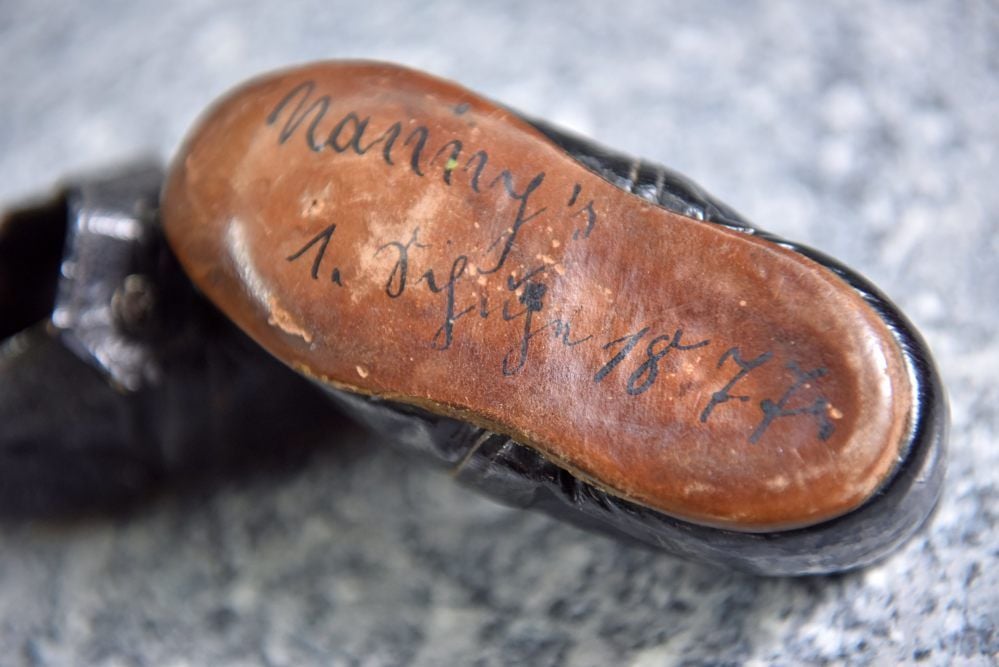 Nanning's
1. Schuhe 1877.